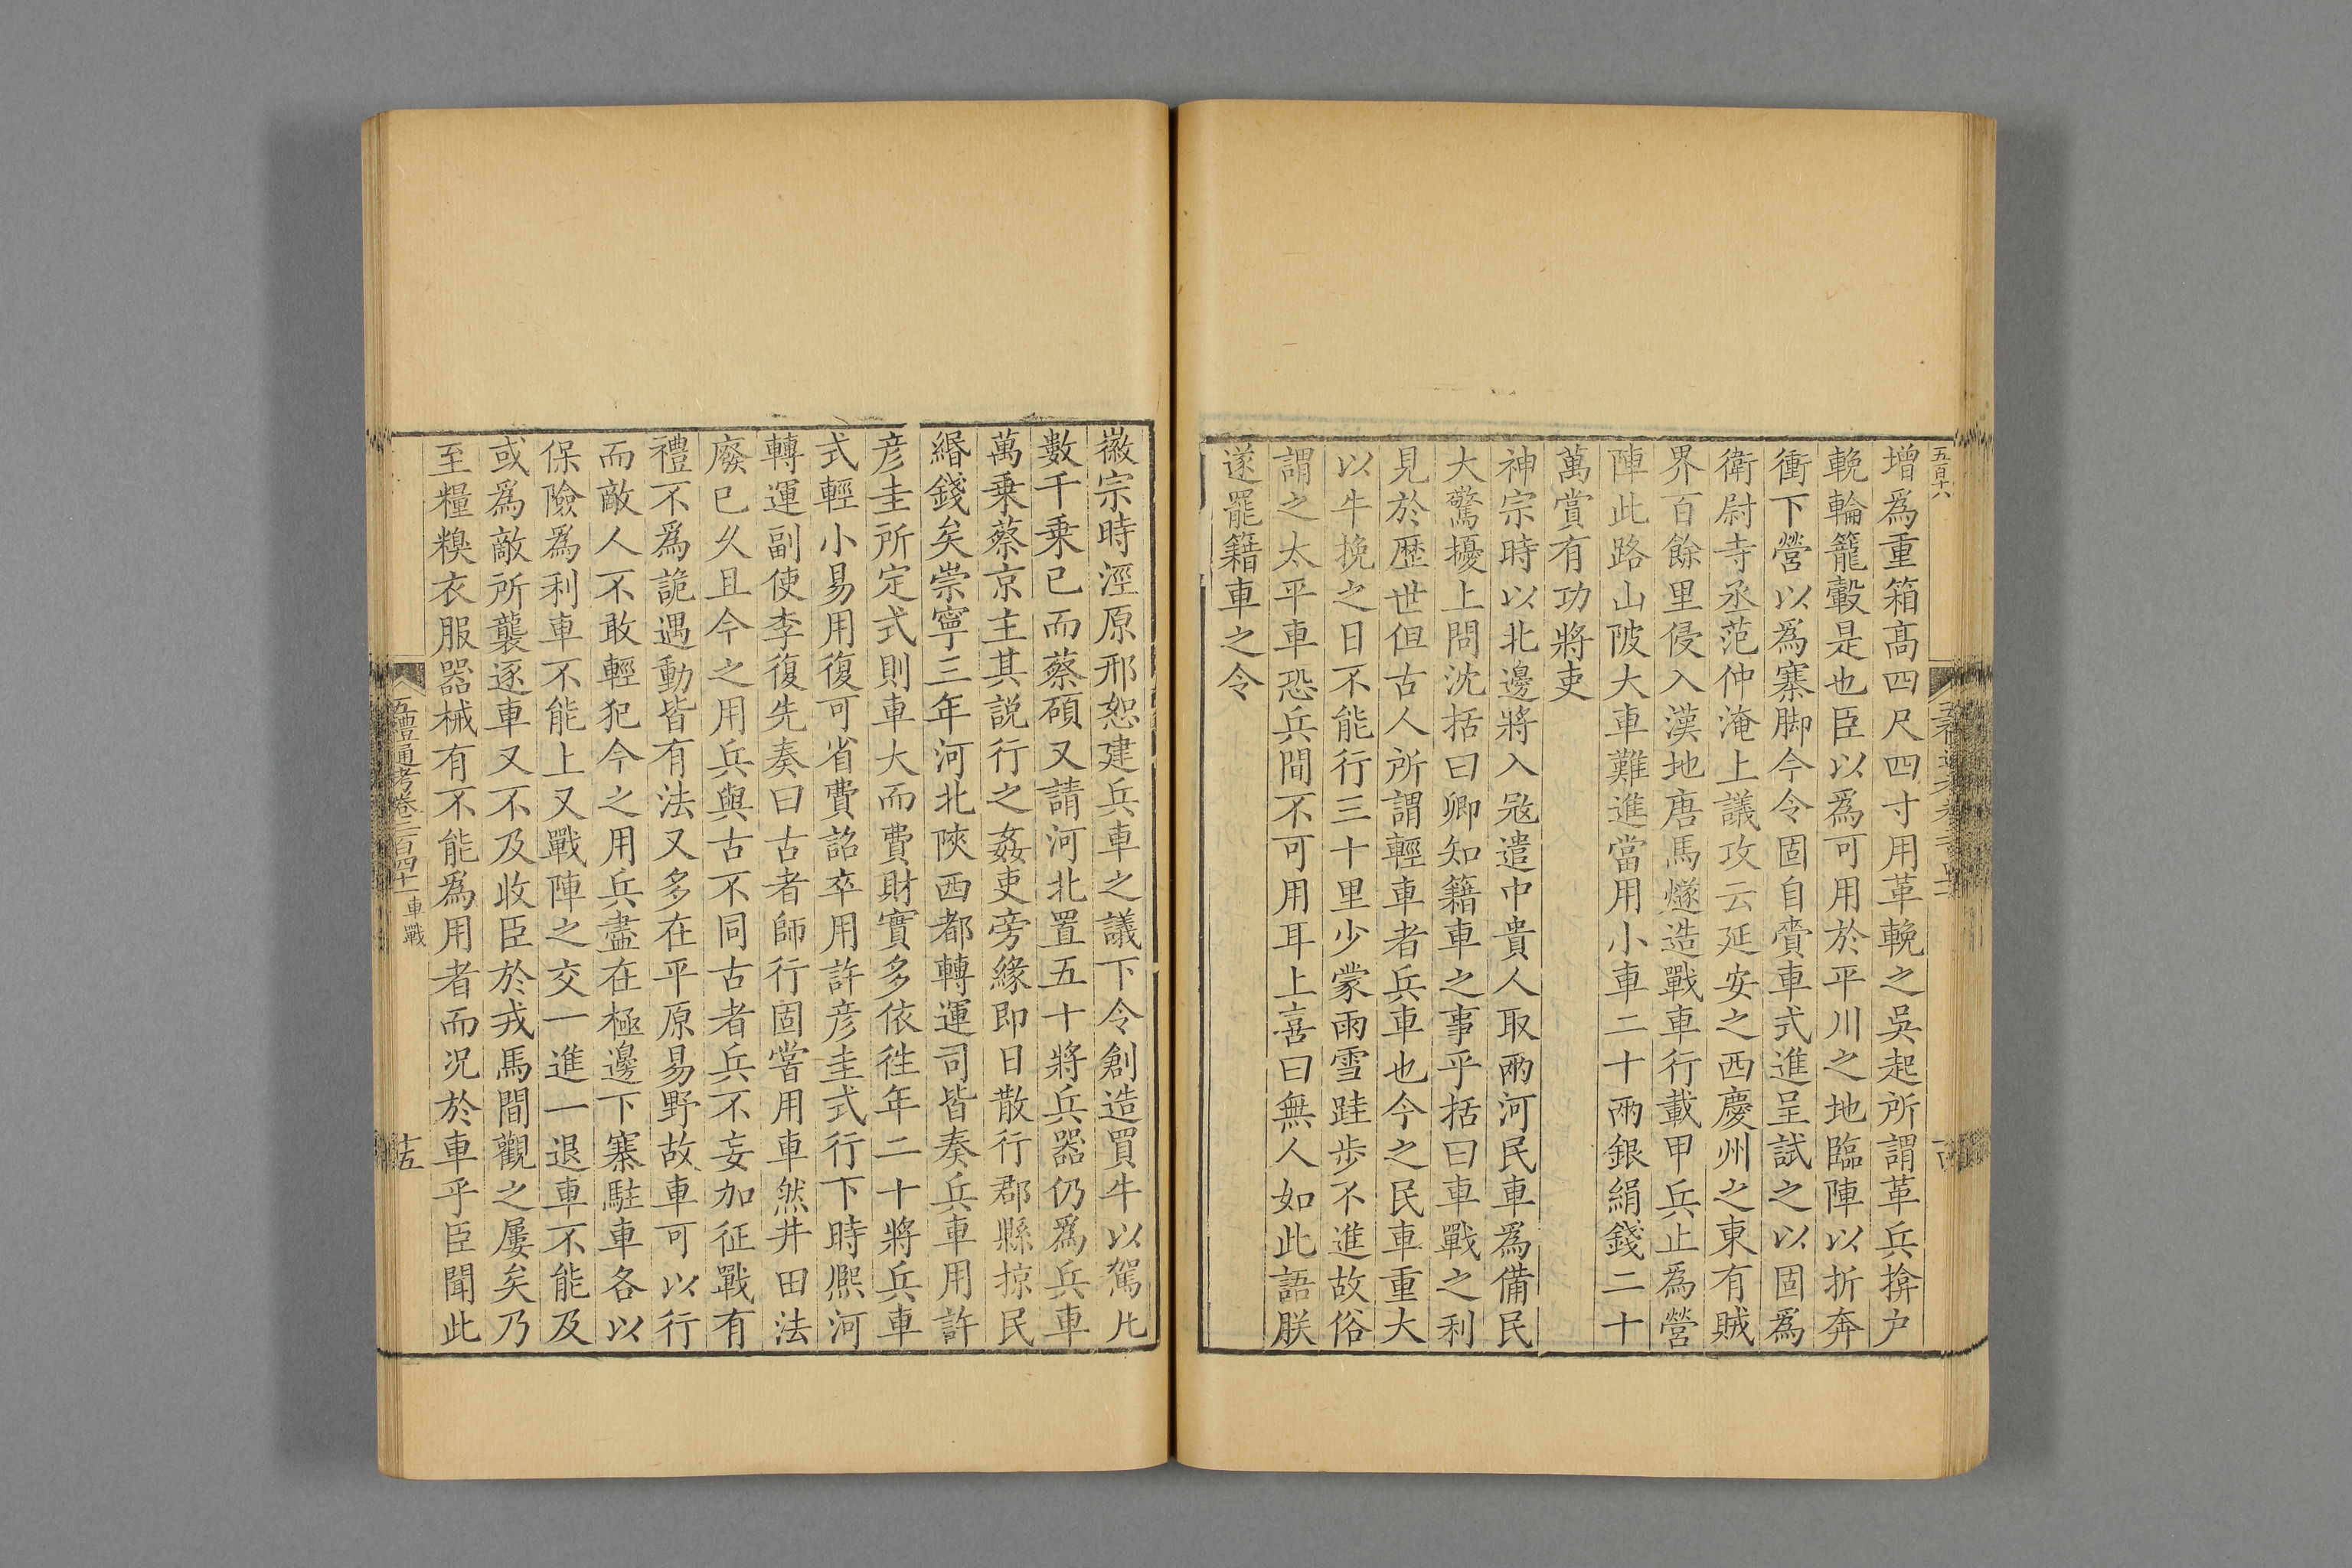 五百十六
增爲重箱高四尺四寸用革輓之吳起所謂革兵揜户
輓輪籠轂是也臣以爲可用於平川之地臨陣以折奔
衝下營以爲寨脚今令固自賫車式進呈試之以固爲
衛尉寺丞范仲淹上議攻云延安之西慶州之東有賊
界百餘里侵入漢地唐馬燧造戰車行載甲兵止爲營
陣此路山陂大車難進當用小車二十兩銀絹錢二十
萬賞有功將吏
神宗時以北邊將入寇遣中貴人取兩河民車爲備民
大驚擾上問沈括曰卿知籍車之事乎括曰車戰之利
見於歴世但古人所謂輕車者兵車也今之民車重大
以牛挽之日不能行三十里少蒙雨雪跬步不進故俗
謂之太平車恐兵間不可用耳上喜曰無人如此語朕
遂罷籍車之令
徽宗時涇原邢恕建兵車之議下令創造買牛以駕凡
數千乗已而蔡碩又請河北置五十將兵器仍爲兵車
萬乗蔡京主其説行之姦吏旁緣即日散行郡縣掠民
緡錢矣崇寧三年河北陜西都轉運司皆奏兵車用許
彦圭所定式則車大而費財實多依徃年二十將兵車
式輕小易用復可省費詔卒用許彦圭式行下時熈河
轉運副使李復先奏曰古者師行固嘗用車然井田法
廢已久且今之用兵與古不同古者兵不妄加征戰有
禮不爲詭遇動皆有法又多在平原易野故車可以行
而敵人不敢輕犯今之用兵盡在極邊下寨駐車各以
保險爲利車不能上又戰陣之交一進一退車不能及
或爲敵所襲逐車又不及收臣於戎馬間觀之屢矣乃
至糧糗衣服器械有不能爲用者而况於車乎臣聞此
五禮通考卷二百四十一 車戰
十五